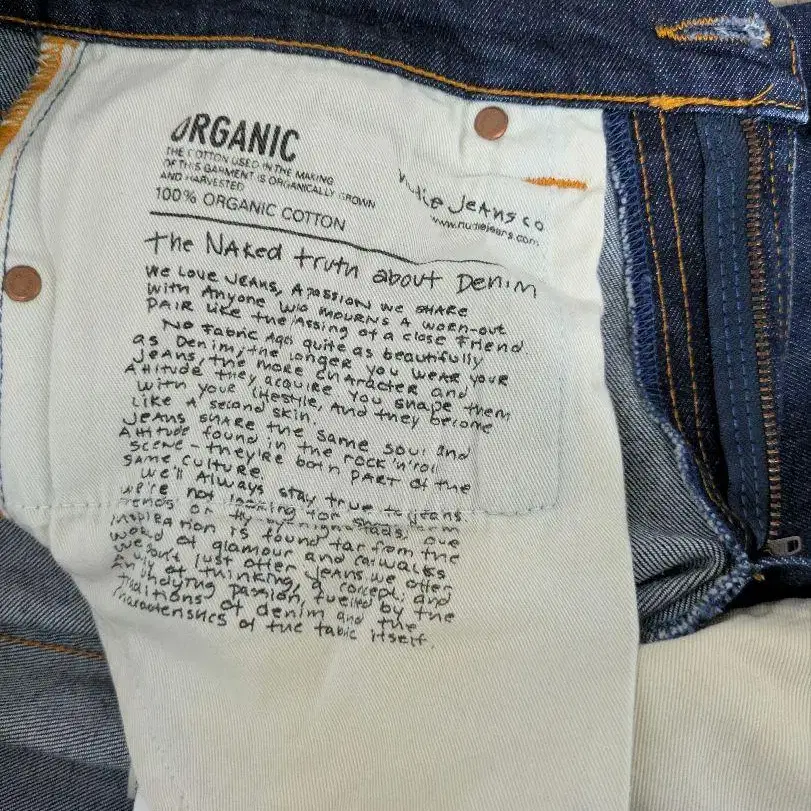 ORGANIC
THE COTTON USED IN THE MAKING
OF THIS GARMENT IS ORGANICALLY GROWN
AND HARVESTED
100% ORGANIC COTTON
Nudie Jeans co
www.nudiejeans.com
the Naked truth about Denim
We Love Jeans, A passion we share
with Anyone who mourns A worn-out
pair like the passing of a close friend.
No fabric ages quite as beautifully
as Denim, the longer you wear your
Jeans, the more character and
Attitude they acquire. You shape them
with your lifestyle, and they become
like a second skin.
Jeans share the same soul and
Attitude found in the rock'n'roll
scene - they're both part of the
same culture.
We'll Always stay true to jeans.
we're not looking for
trends or fads. Our
inspiration is found far from the
world of glamour and catwalks
We don't just offer jeans, we offer
A way of thinking, a concept, and
An undying passion, fuelled by the
traditions of denim and the
characteristics of the fabric itself.